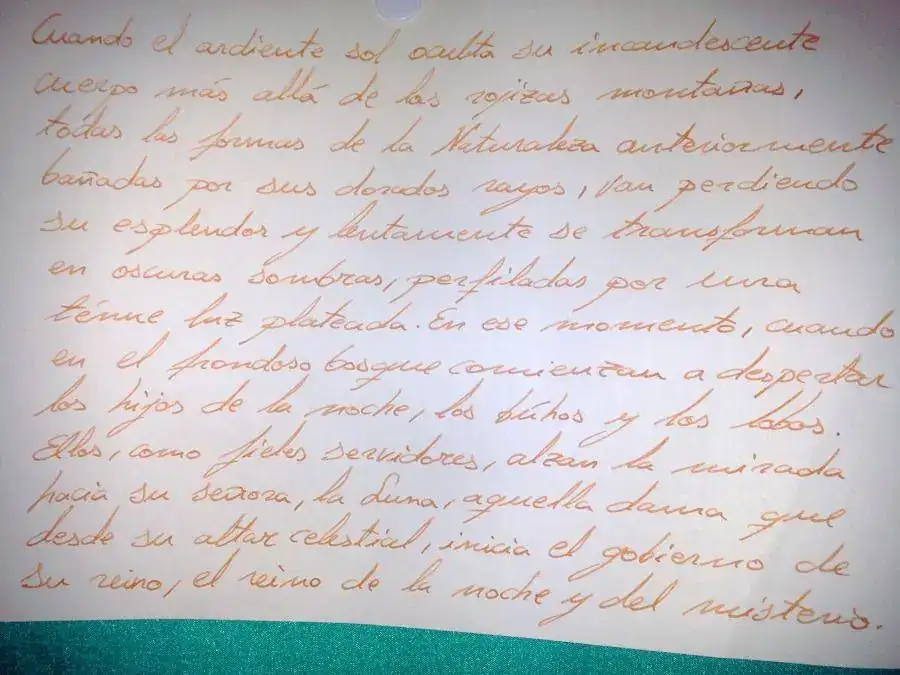 Cuando el ardiente sol oculta su incandescente
cuerpo más allá de las rojizas montañas,
todas las formas de la Naturaleza anteriormente
bañadas por sus dorados rayos, van perdiendo
su esplendor y lentamente se transforman
en oscuras sombras, perfiladas por una
ténue luz plateada. En ese momento, cuando
en el frondoso bosque comienzan a despertar
los hijos de la noche, los búhos y los lobos.
Ellos, como fieles servidores, alzan la mirada
hacia su señora, la Luna, aquella dama que
desde su altar celestial, inicia el gobierno de
su reino, el reino de la noche y del misterio.